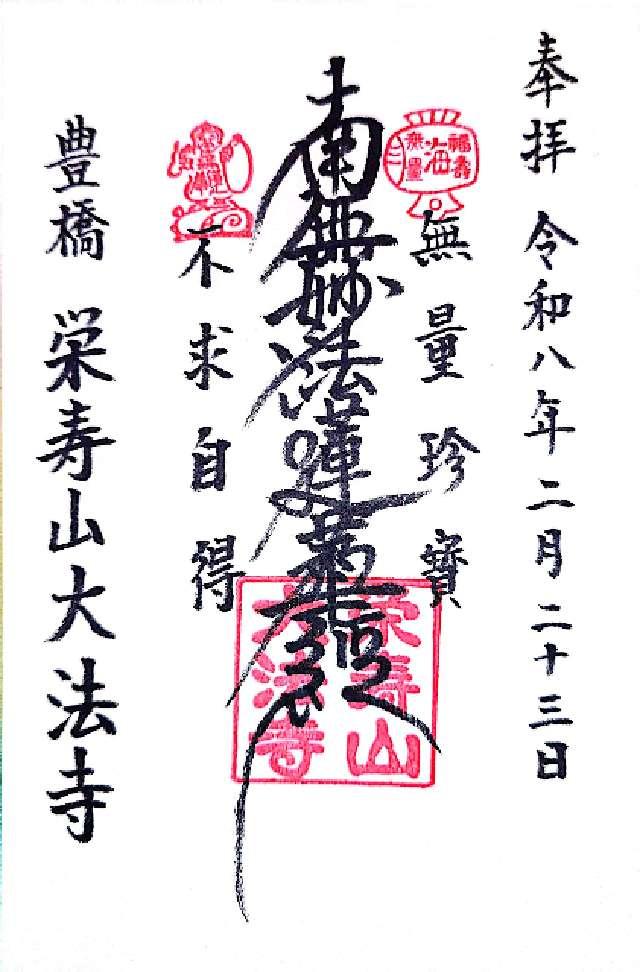 奉拝 令和八年二月二十三日
福壽海無量
無量珍寶
南無妙法蓮華経
不求自得
豊橋 栄寿山大法寺
栄寿山大法寺